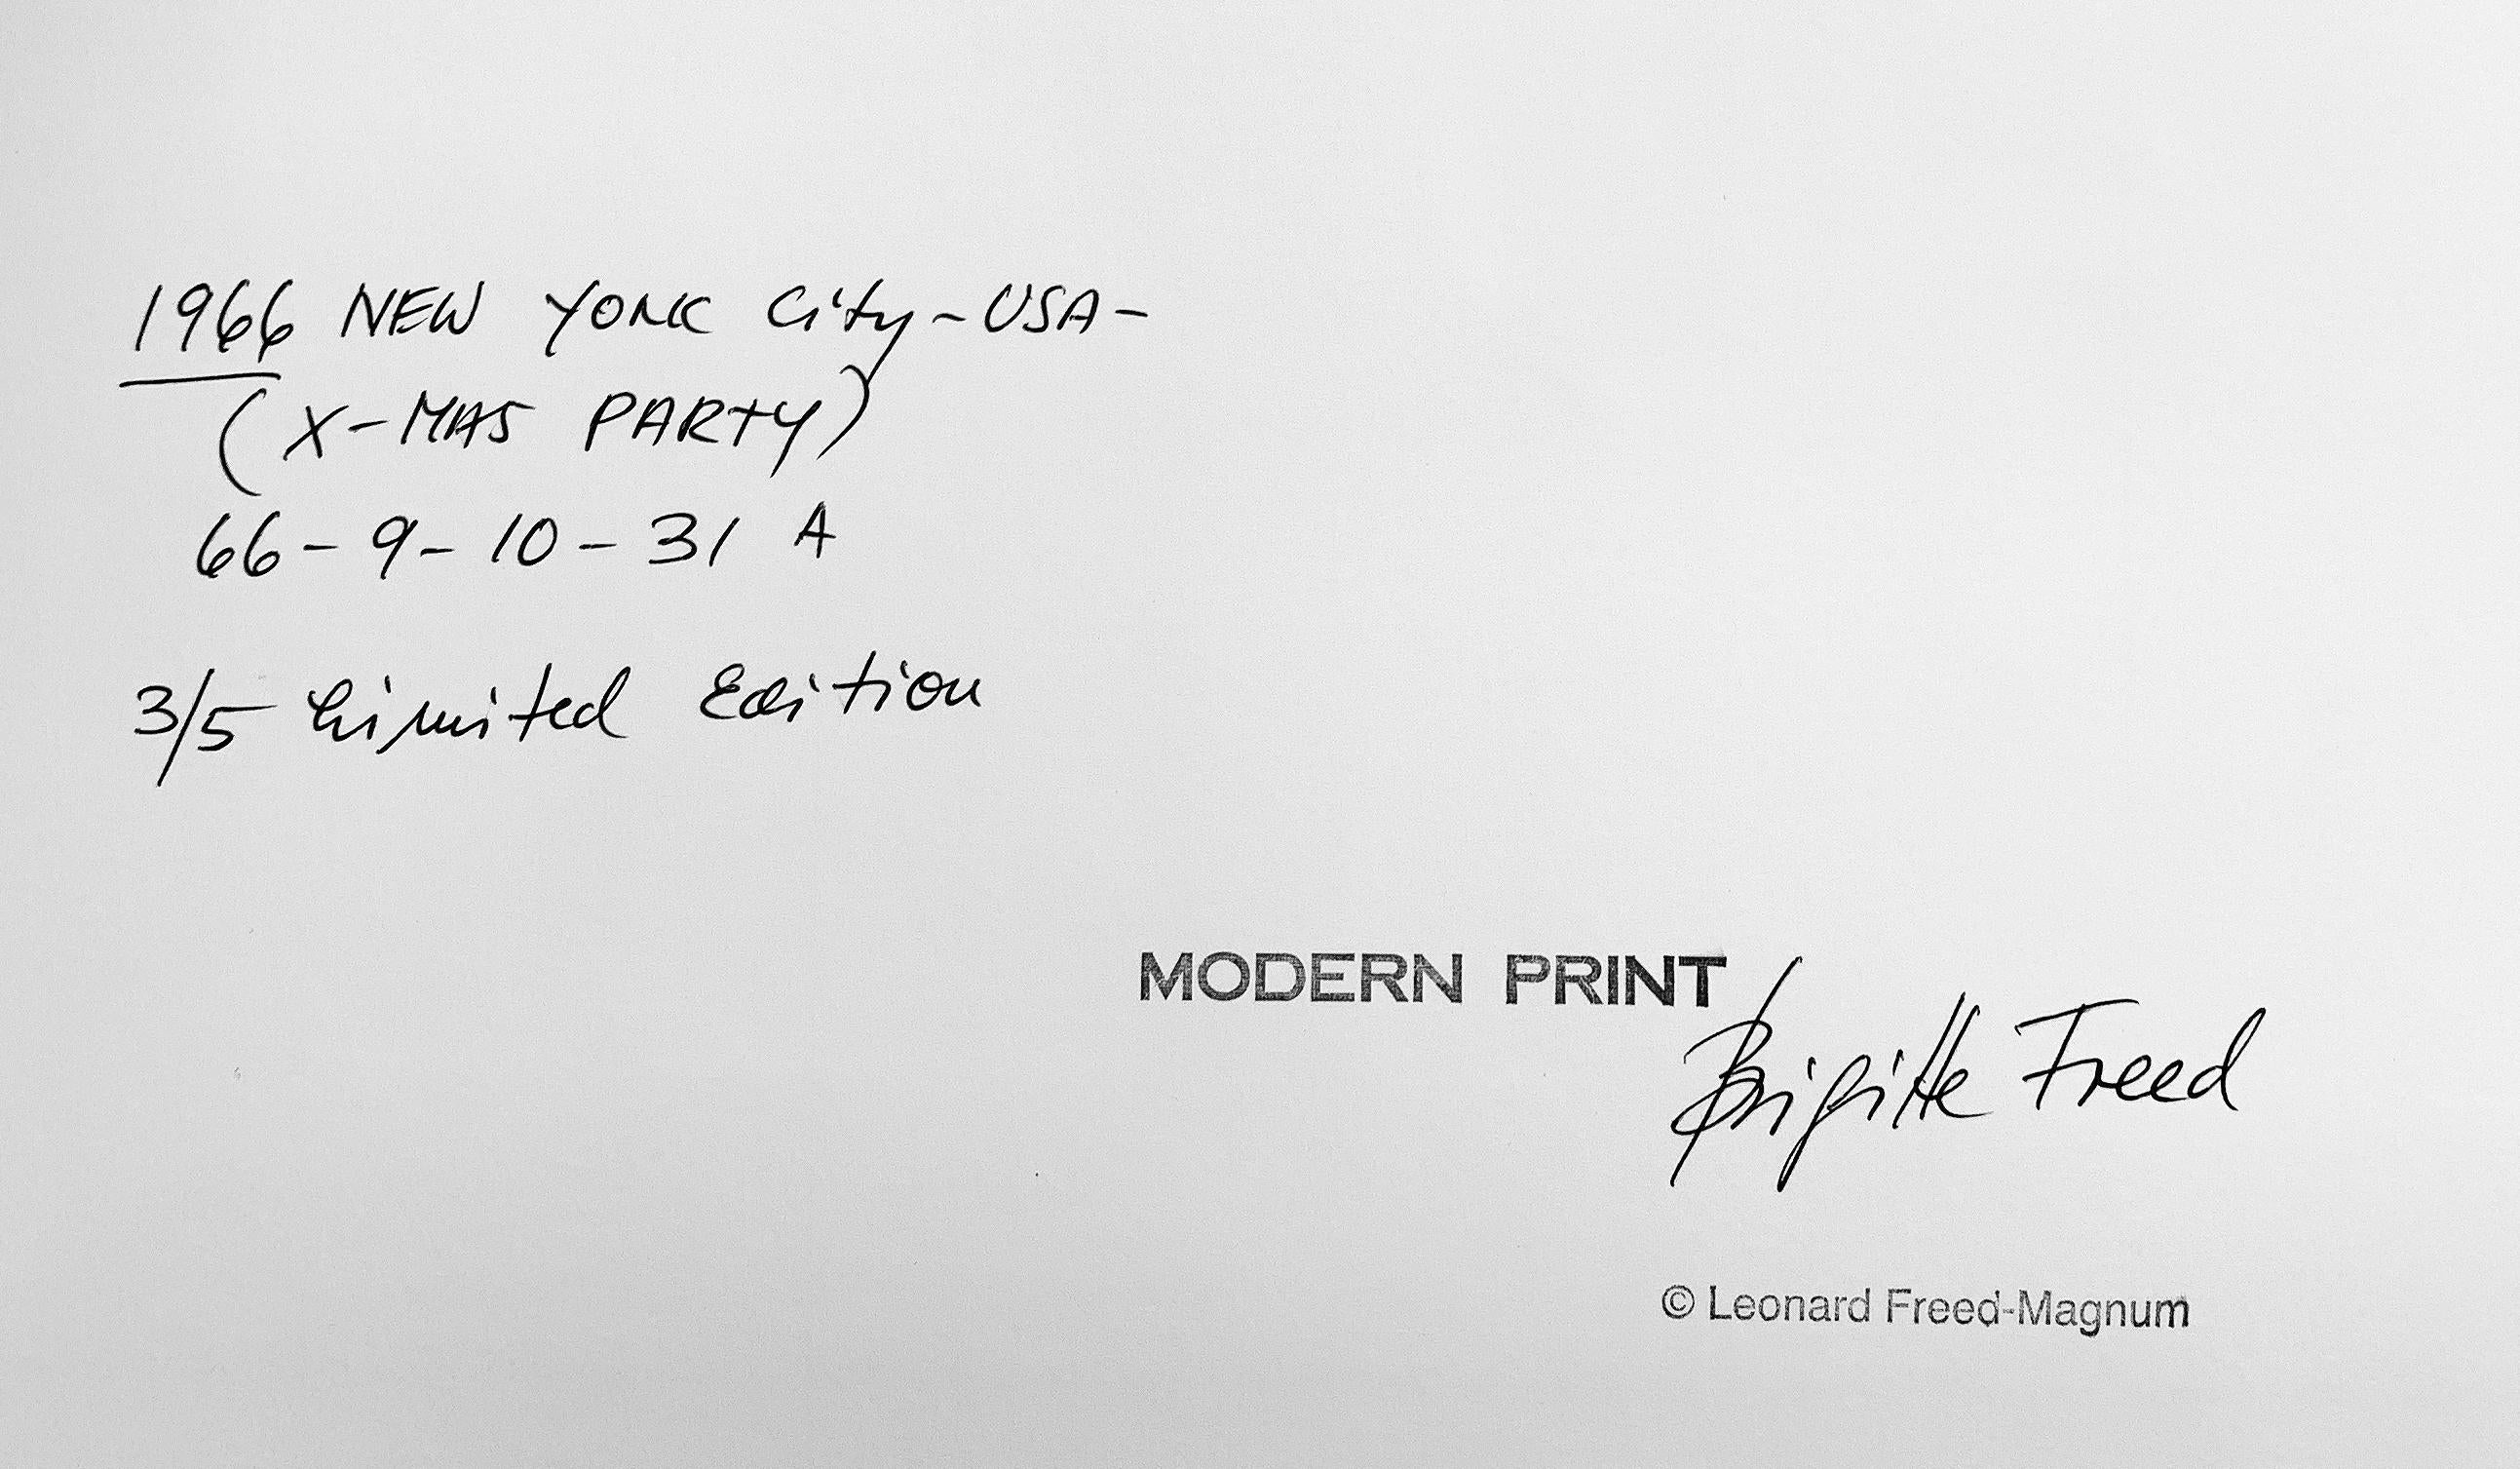 1966 NEW YORK City - USA -
(X-MAS PARTY)
66 - 9 - 10 - 31 A
3/5 Limited Edition
MODERN PRINT
Brigitte Freed
© Leonard Freed-Magnum